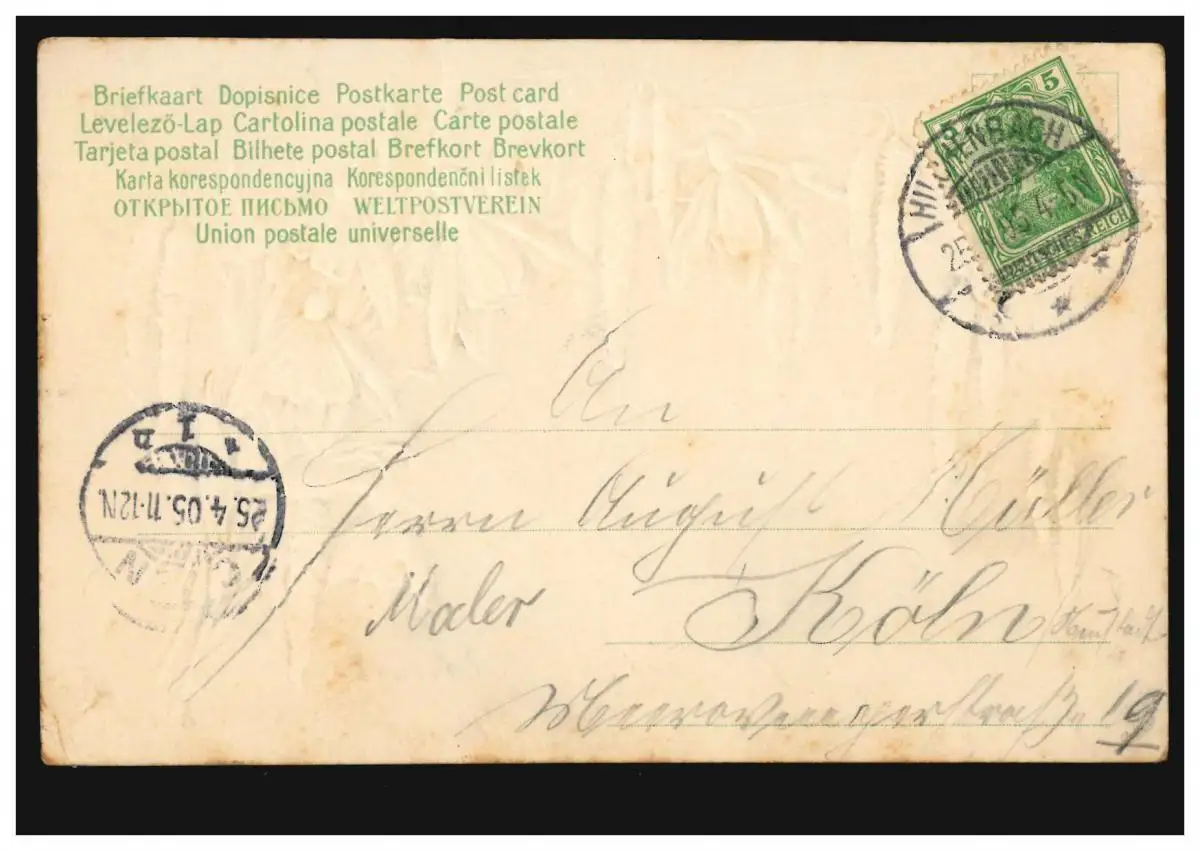 Briefkaart Dopisnice Postkarte Post card
Levelező-Lap Cartolina postale Carte postale
Tarjeta postal Bilhete postal Brefkort Brevkort
Karta korespondencyjna Korespondenčni listek
ОТКРЫТОЕ ПИСЬМО WELTPOSTVEREIN
Union postale universelle
5
DEUTSCHES REICH
25. 05 4-5N
25.4.05.11-12N.
An
Herrn August Müller
Maler Köln
19